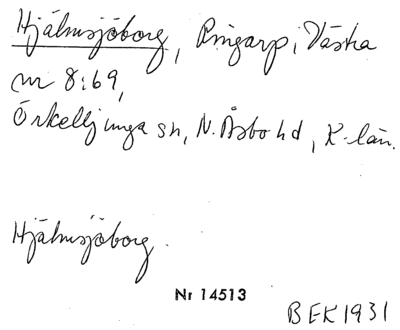 Hjälmsjöborg, Ringarp, Västra
nr 8:69,
Örkelljunga sn, N. Åsbo hd, K-län.
Hjälmsjöborg.
Nr 14513
BEK 1931